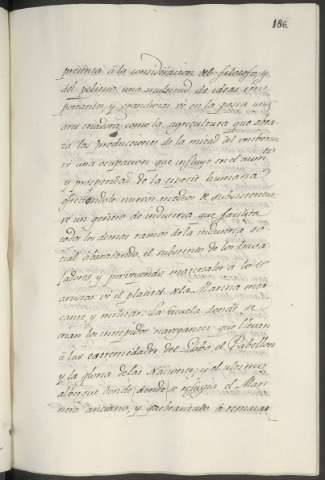 186
presenta á la consideracion del filosofo, y
del politico una multitud de ideas im-
portantes, y grandiosas, vé en la pesca una
arte criadora como la agricultura que abra
za las producciones de la mitad del
vé una ocupacion que influye en el aum.to
y prosperidad de la especie humana
ofreciendola nuevos medios de subsistencia,
vé un genero de industria que facilita
todos los demas ramos de la industria so-
cial abaratando el alimento de los traba
jadores y materiales á lo
vé el plantel de la Marina mer
cante y militar: la escuela donde se
crian los intrepidos navegantes que llevan
á las extremidades del Globo el Pabellon
y la gloria de las Naciones: y el ultimo
albergue donde se refugia el Mari
nero anciano, y quebrantado á